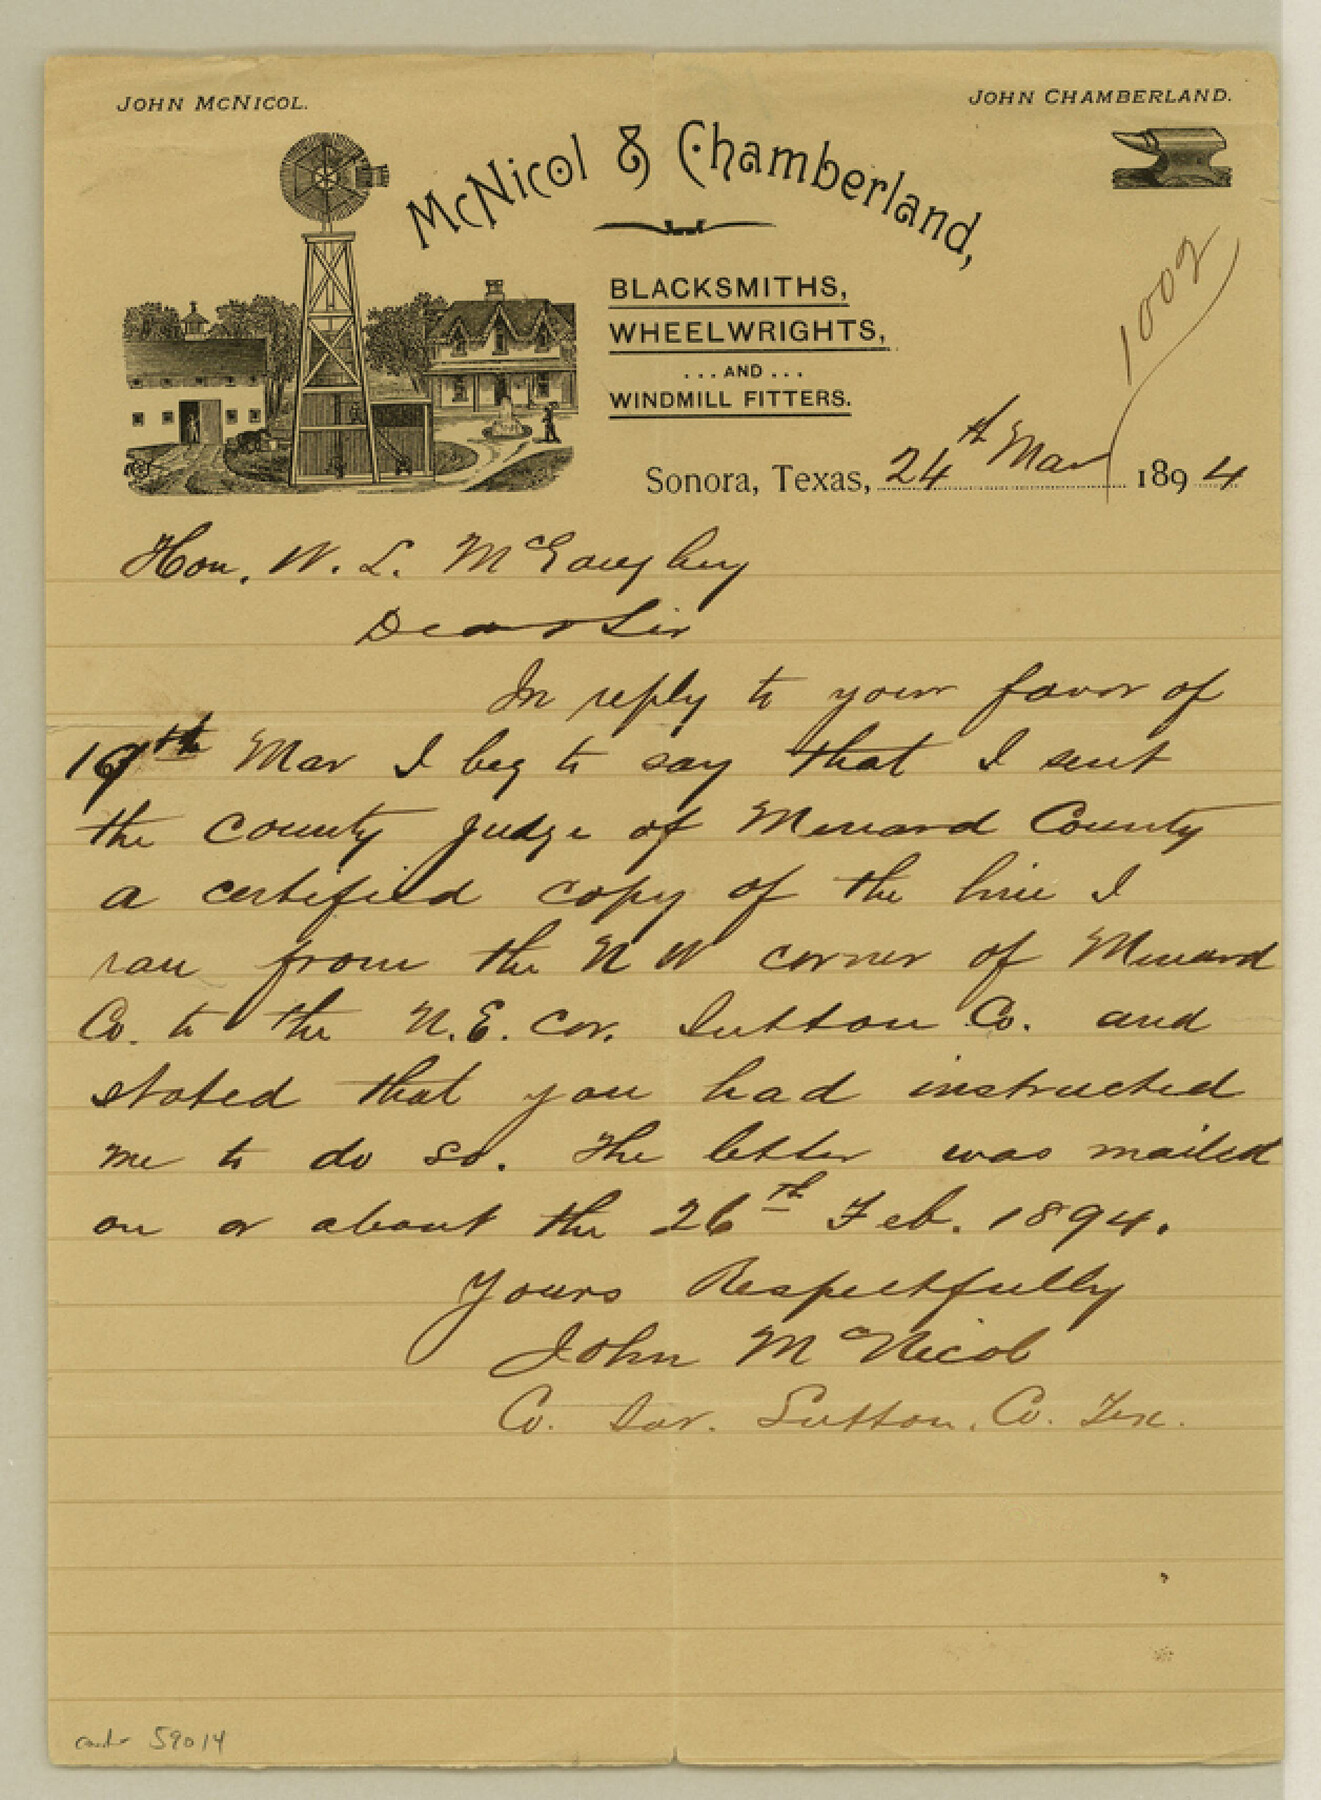 JOHN MCNICOL.
JOHN CHAMBERLAND.
McNicol & Chamberland,
BLACKSMITHS,
WHEELWRIGHTS,
...AND...
WINDMILL FITTERS.
1002
Sonora, Texas, 24th Mar 1894
Hon. W. L. McGaughey
Dear Sir
In reply to your favor of
19th Mar I beg to say that I sent
the county judge of Menard County
a certified copy of the line I
ran from the N W corner of Menard
Co. to the N.E. cor. Sutton Co. and
stated that you had instructed
me to do so. The letter was mailed
on or about the 26th Feb. 1894.
Yours Respectfully
John McNicol
Co. Sur. Sutton. Co. Tex.
59014